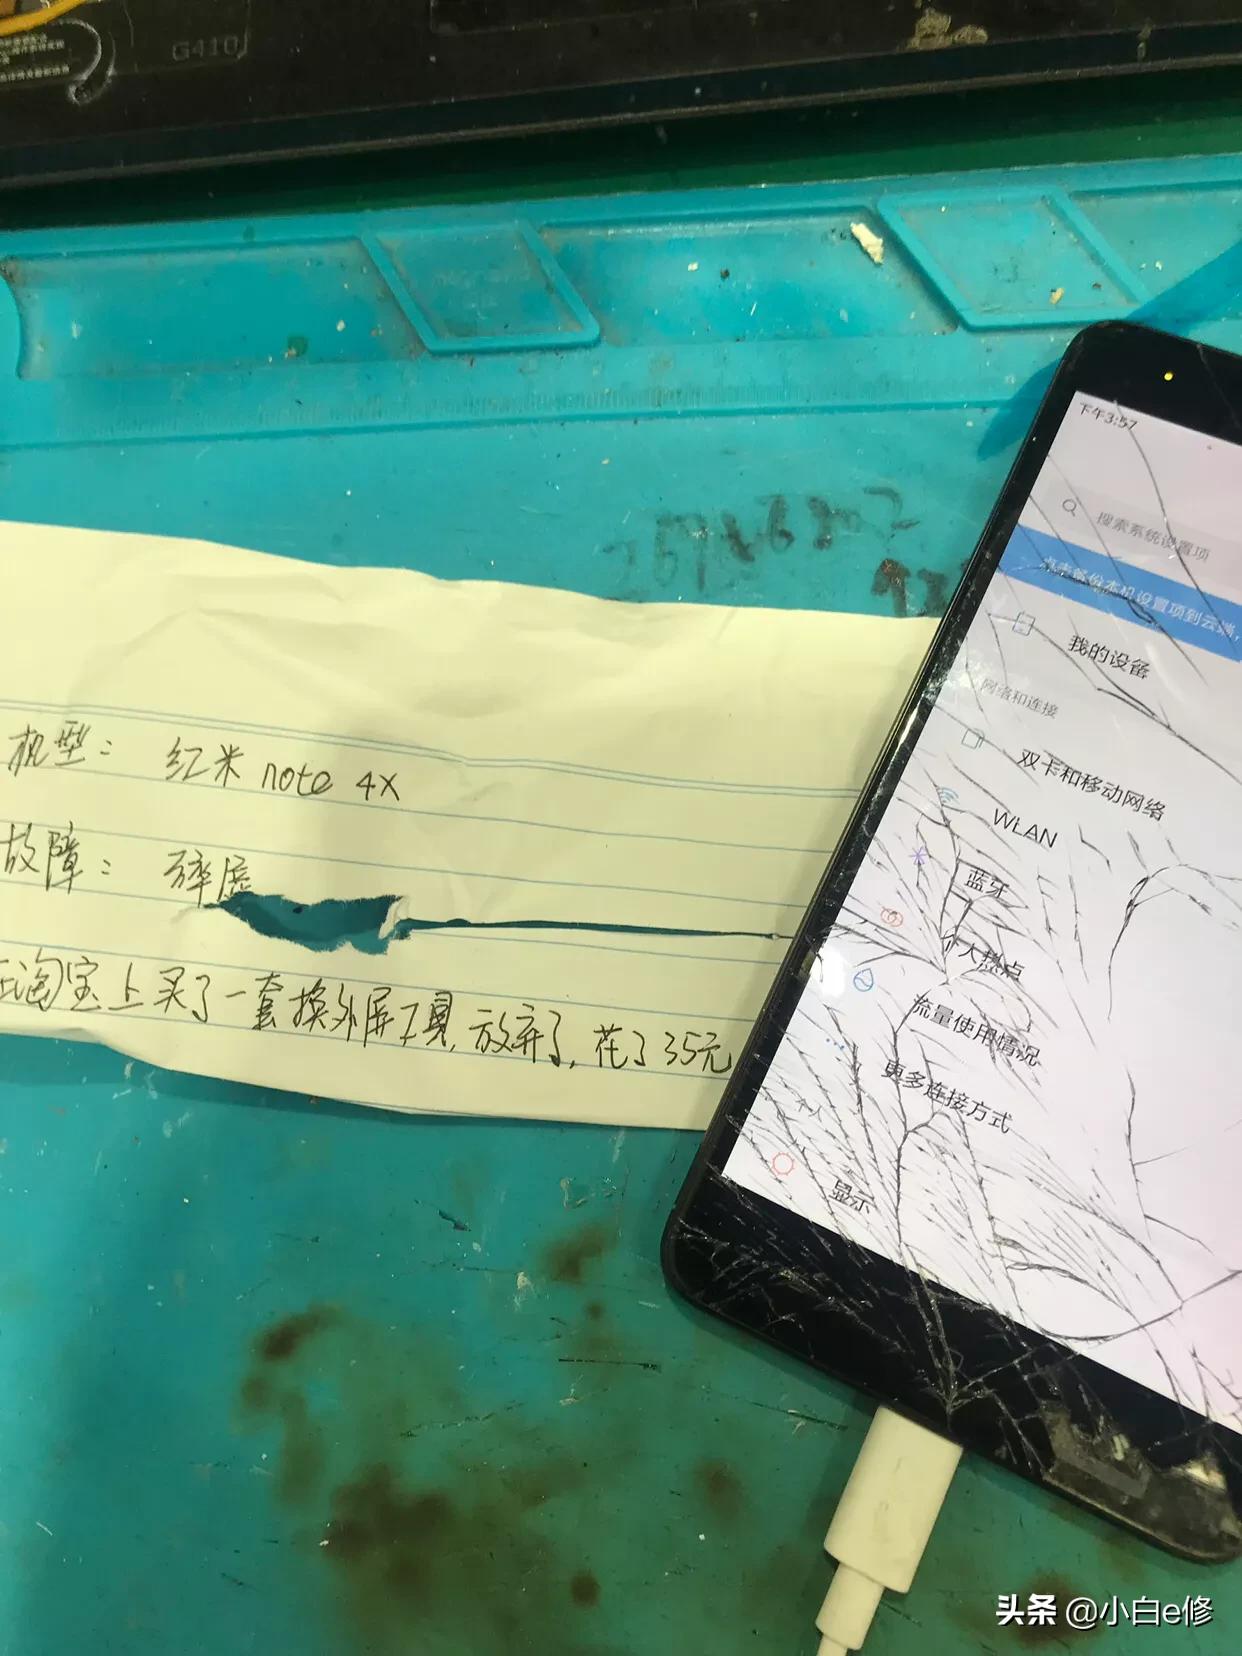 G410
机型： 红米 note 4X
故障： 碎屏
在淘宝上买了一套换外屏工具，放弃了，花了35元
下午3:57
搜索系统设置项
点击备份本机设置项到云端，
我的设备
网络和连接
双卡和移动网络
WLAN
蓝牙
个人热点
流量使用情况
更多连接方式
个人
显示
头条 @小白e修